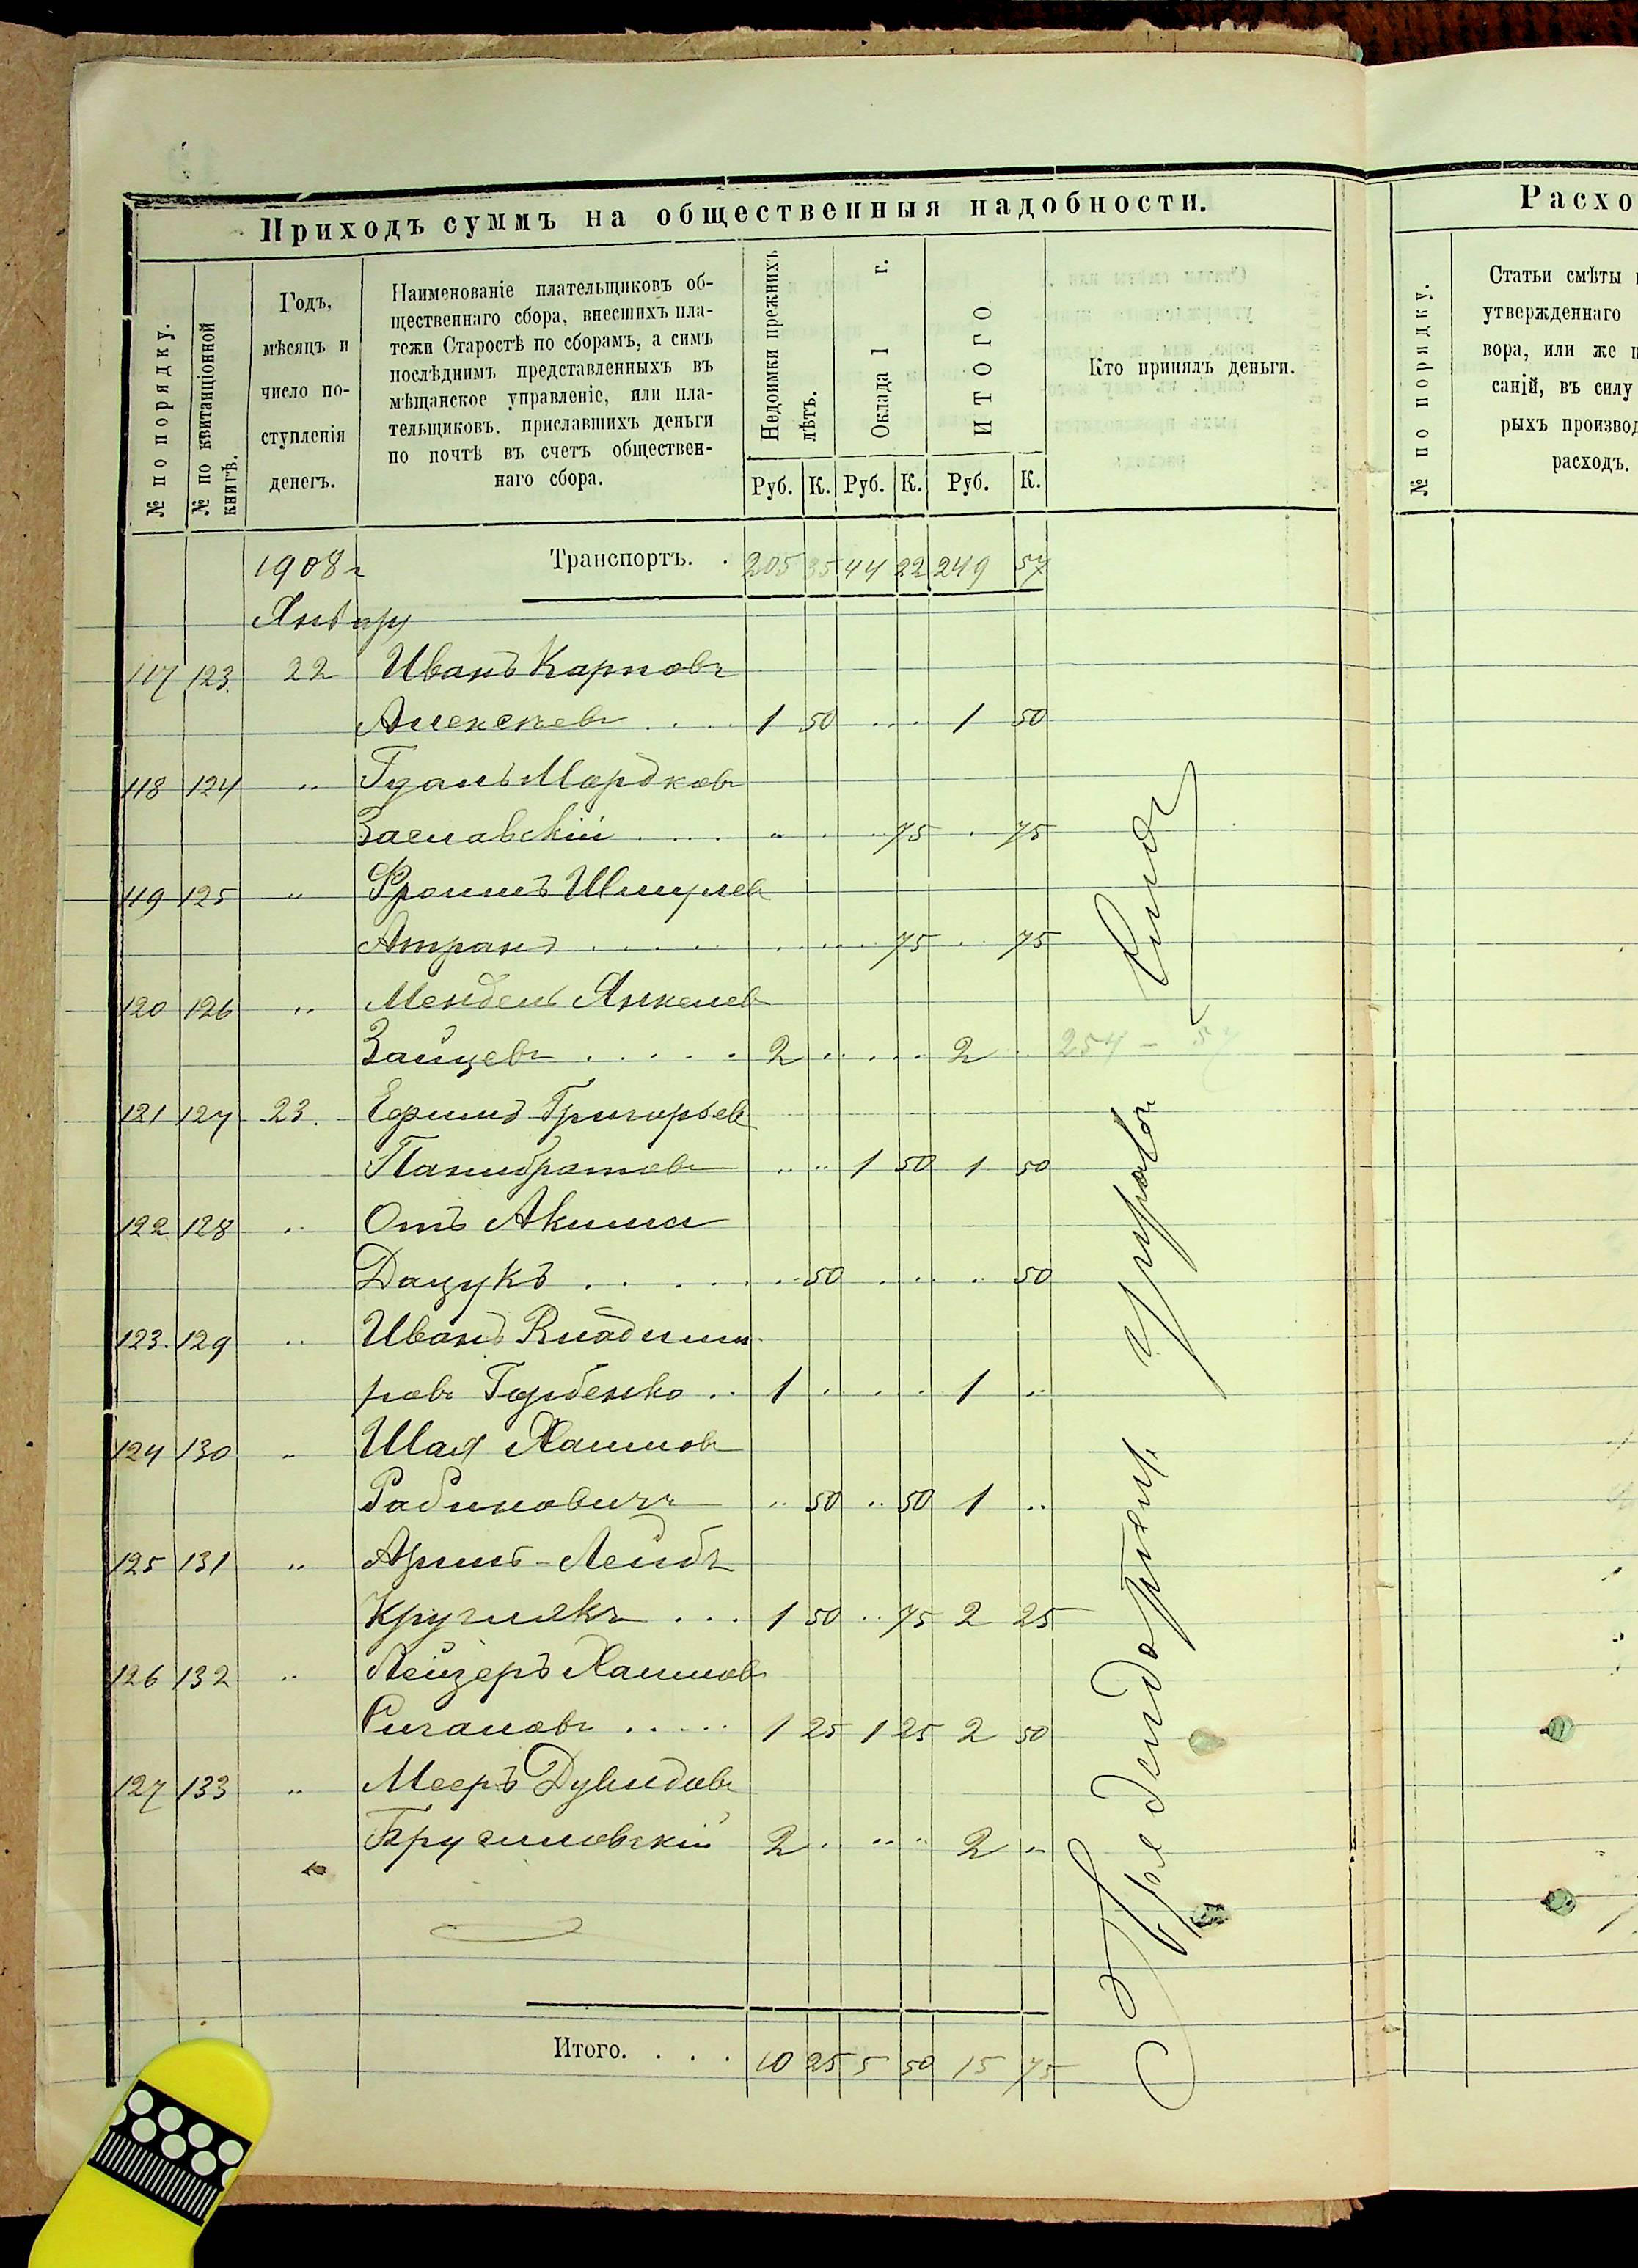 Приходъ суммъ на общественныя надобности.
№ по порядку.
№ по квитанціонной книгѣ.
Годъ, мѣсяцъ и число поступленія денегъ.
Наименованіе плательщиковъ об-
щественнаго сбора, внесшихъ пла-
тежи Старостѣ по сборамъ, а симъ
послѣднимъ представленныхъ въ
мѣщанское управленіе, или пла-
тельщиковъ. приславшихъ деньги
по почтѣ въ счетъ обществен-
наго сбора.
Недоимки прежнихъ лѣтъ.
Оклада 1 г.
ИТОГО
Кто принялъ деньги.
Руб. К. Руб. К. Руб. К.
1908 г Транспортъ. . 205 35 44 22 249 57
Январу
117 123. 22 Иванъ Карповъ
Алексѣевъ . . . . 1 50 . . . 1 50
118 124 " Мордков
Заславскій . . . . " . . . 75 . 75
119 125 " Фроимъ Шмулев
Атранъ . . . . . 75 . . 75
120 126 " Мендель Янкелев
Зайцевъ . . . . . 2 . . . . . 2 .. 254 - 57
121 127 23. Ефимъ Григорьев
Панибратовъ .. .. 1 50 1 50
122 128 " Отъ Акима
Дацукъ . . . . . .. 50 . . . .. 50
123. 129 " Иванъ Владими
ровъ Горбенко .. 1 . . . . 1 ..
124 130 " Шая Хаимов
Рабиновичъ .. 50 .. 50 1 ..
125 131 " Лейбъ
Кругликъ . . . 1 50 .. 75 2 25
126 132 " Лейзеръ Хаимов
Сигаловъ . . . . . 1 25 1 25 2 50
127 133 " Мееръ Дувидовъ
Брусиловскій 2 . . " .. 2 "
Итого. . . . 10 25 5 50 15 75
Расхо
№ по порядку.
Статьи смѣты
утвержденнаго
вора, или же
саній, въ силу
рыхъ производ
расходъ.